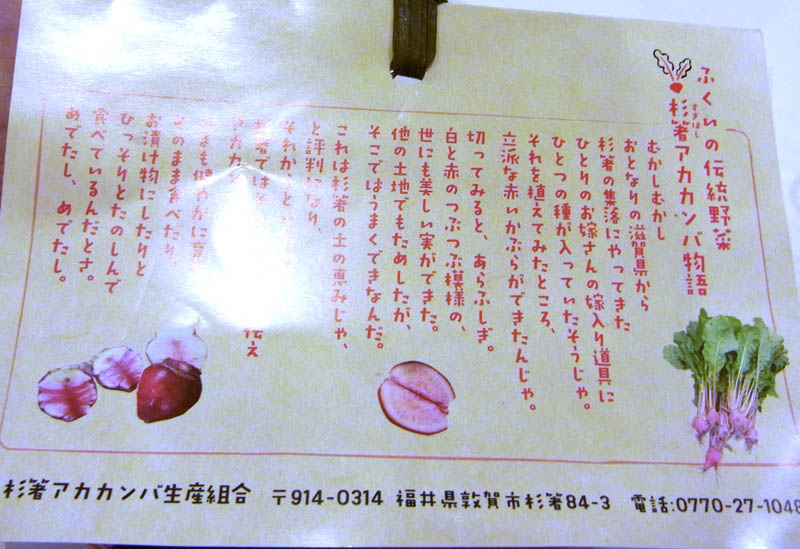 ふくいの伝統野菜
すぎはし
杉箸アカカンバ物語
むかしむかし
おとなりの滋賀県から
杉箸の集落にやってきた
ひとりのお嫁さんの嫁入り道具に
ひとつの種が入っていたそうじゃ。
それを植えてみたところ、
立派な赤いかぶらができたんじゃ。
切ってみると、あらふしぎ。
白と赤のつぶつぶ模様の、
世にも美しい実ができた。
他の土地でもためしたが、
そこではうまくできなんだ。
これは杉箸の土の恵みじゃ、
と評判になり、
それから
では
伝え
アカカン
まも健やかに育
そのまま食べたり、
お漬け物にしたりと
ひっそりとたのしんで
食べているんだとさ。
めでたし、めでたし。
杉箸アカカンバ生産組合 〒914-0314 福井県敦賀市杉箸84-3 電話:0770-27-1048